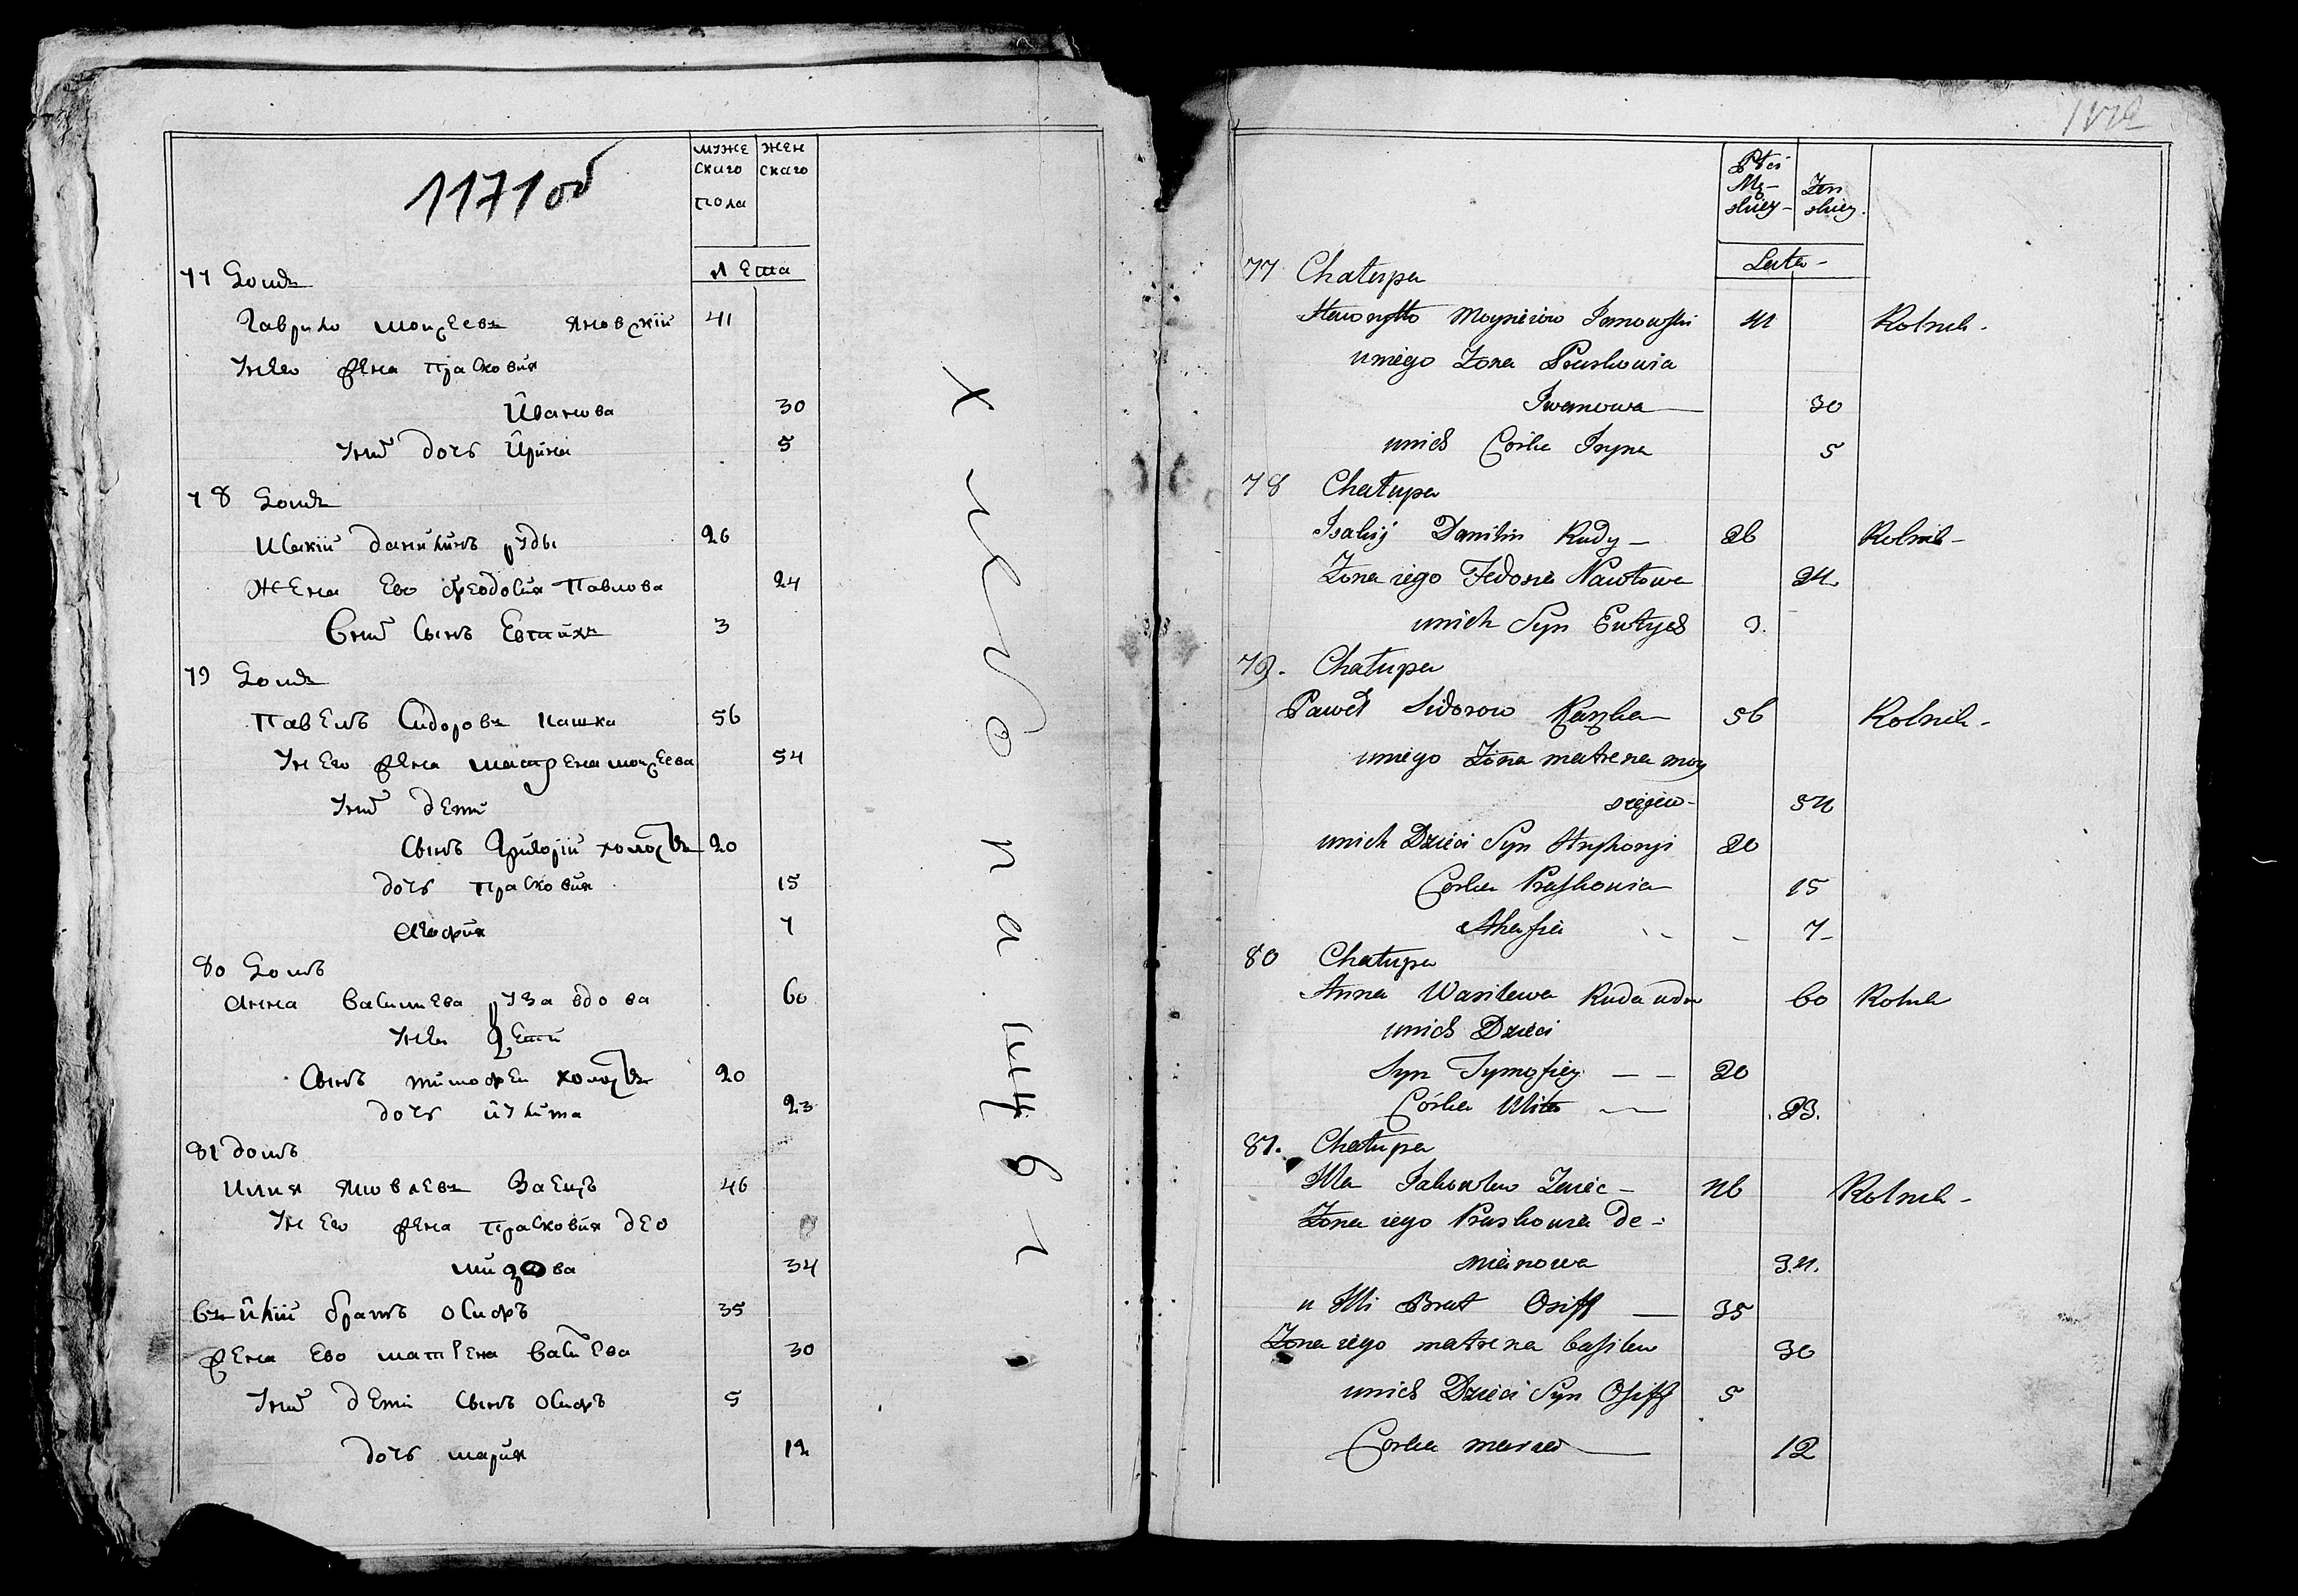 1171 об
муже ского пола
жен ского
лѣта
77 Домъ
Гаврило Моисеевъ Яновскій 41
у него жена Прасковия
Иванова 30
у них дочь Ирина 5
78 Домъ
Исакій Данилинъ Руды 26
жена ево Феодосия Павлова 24
в них сынъ Евтихъ 3
79 Домъ
Павелъ Сидоровъ Кашка 56
у него жена Матрена Моисеева 54
у них дети
сынъ Григорій холостъ 20
дочь Прасковия 15
Агафия 7
80 Домъ
Анна Василиева Рудa вдова 60
у неи дети
сынъ Тимофеи холостъ 20
дочь Иулита 23
81 домъ
Илия Яковлевъ Заецъ 46
у него жена Прасковия Део
мидова 34
въ Илїи братъ Осифъ 35
жена ево Матрена Василева 30
у них дети сынъ Осифъ 5
дочь Мария 12
Płci Mę-skiey
Żen skiey.
Lata-
77 Chałupa
Hawryłło Moysieiow Janowski 41 Rolnik.
u niego Żona Praskowia
Iwanowa 30
u nich Córka Iryna 5
78 Chałupa
Isakij Danilin Rudy 26 Rolnik
Żona iego Fedosia Pawłowa 24
u nich Syn Eutych 3.
79. Chałupa
Paweł Sidorow Kaszka 56 Rolnik
u niego Żona Matrena Moy
sieiew 54
u nich Dzieci Syn Hryhoryi 20
Corka Praskowia 15
Ahafia 7
80 Chałupa
Anna Wasilewa Ruda wdo 60 Rolnik
u nich Dzieci
Syn Tymofiey 20
Córka Ulita 23.
81. Chałupa
Illa Jakowlew Zaiec 46 Rolnik
Żona iego Praskowia De-
mianowa 34.
u Illi Brat Osiff 35
Żona iego Matrena Basilew 30
u nich Dzieci Syn Osiff 5
Corka Maria 12